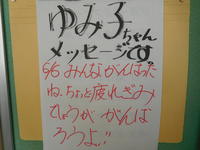 ゆみ子ちゃん
メッセージです
6/6 みんながんばった
ね、ちょっと疲れぎみ
ひょうが がんば
ろうよ!!